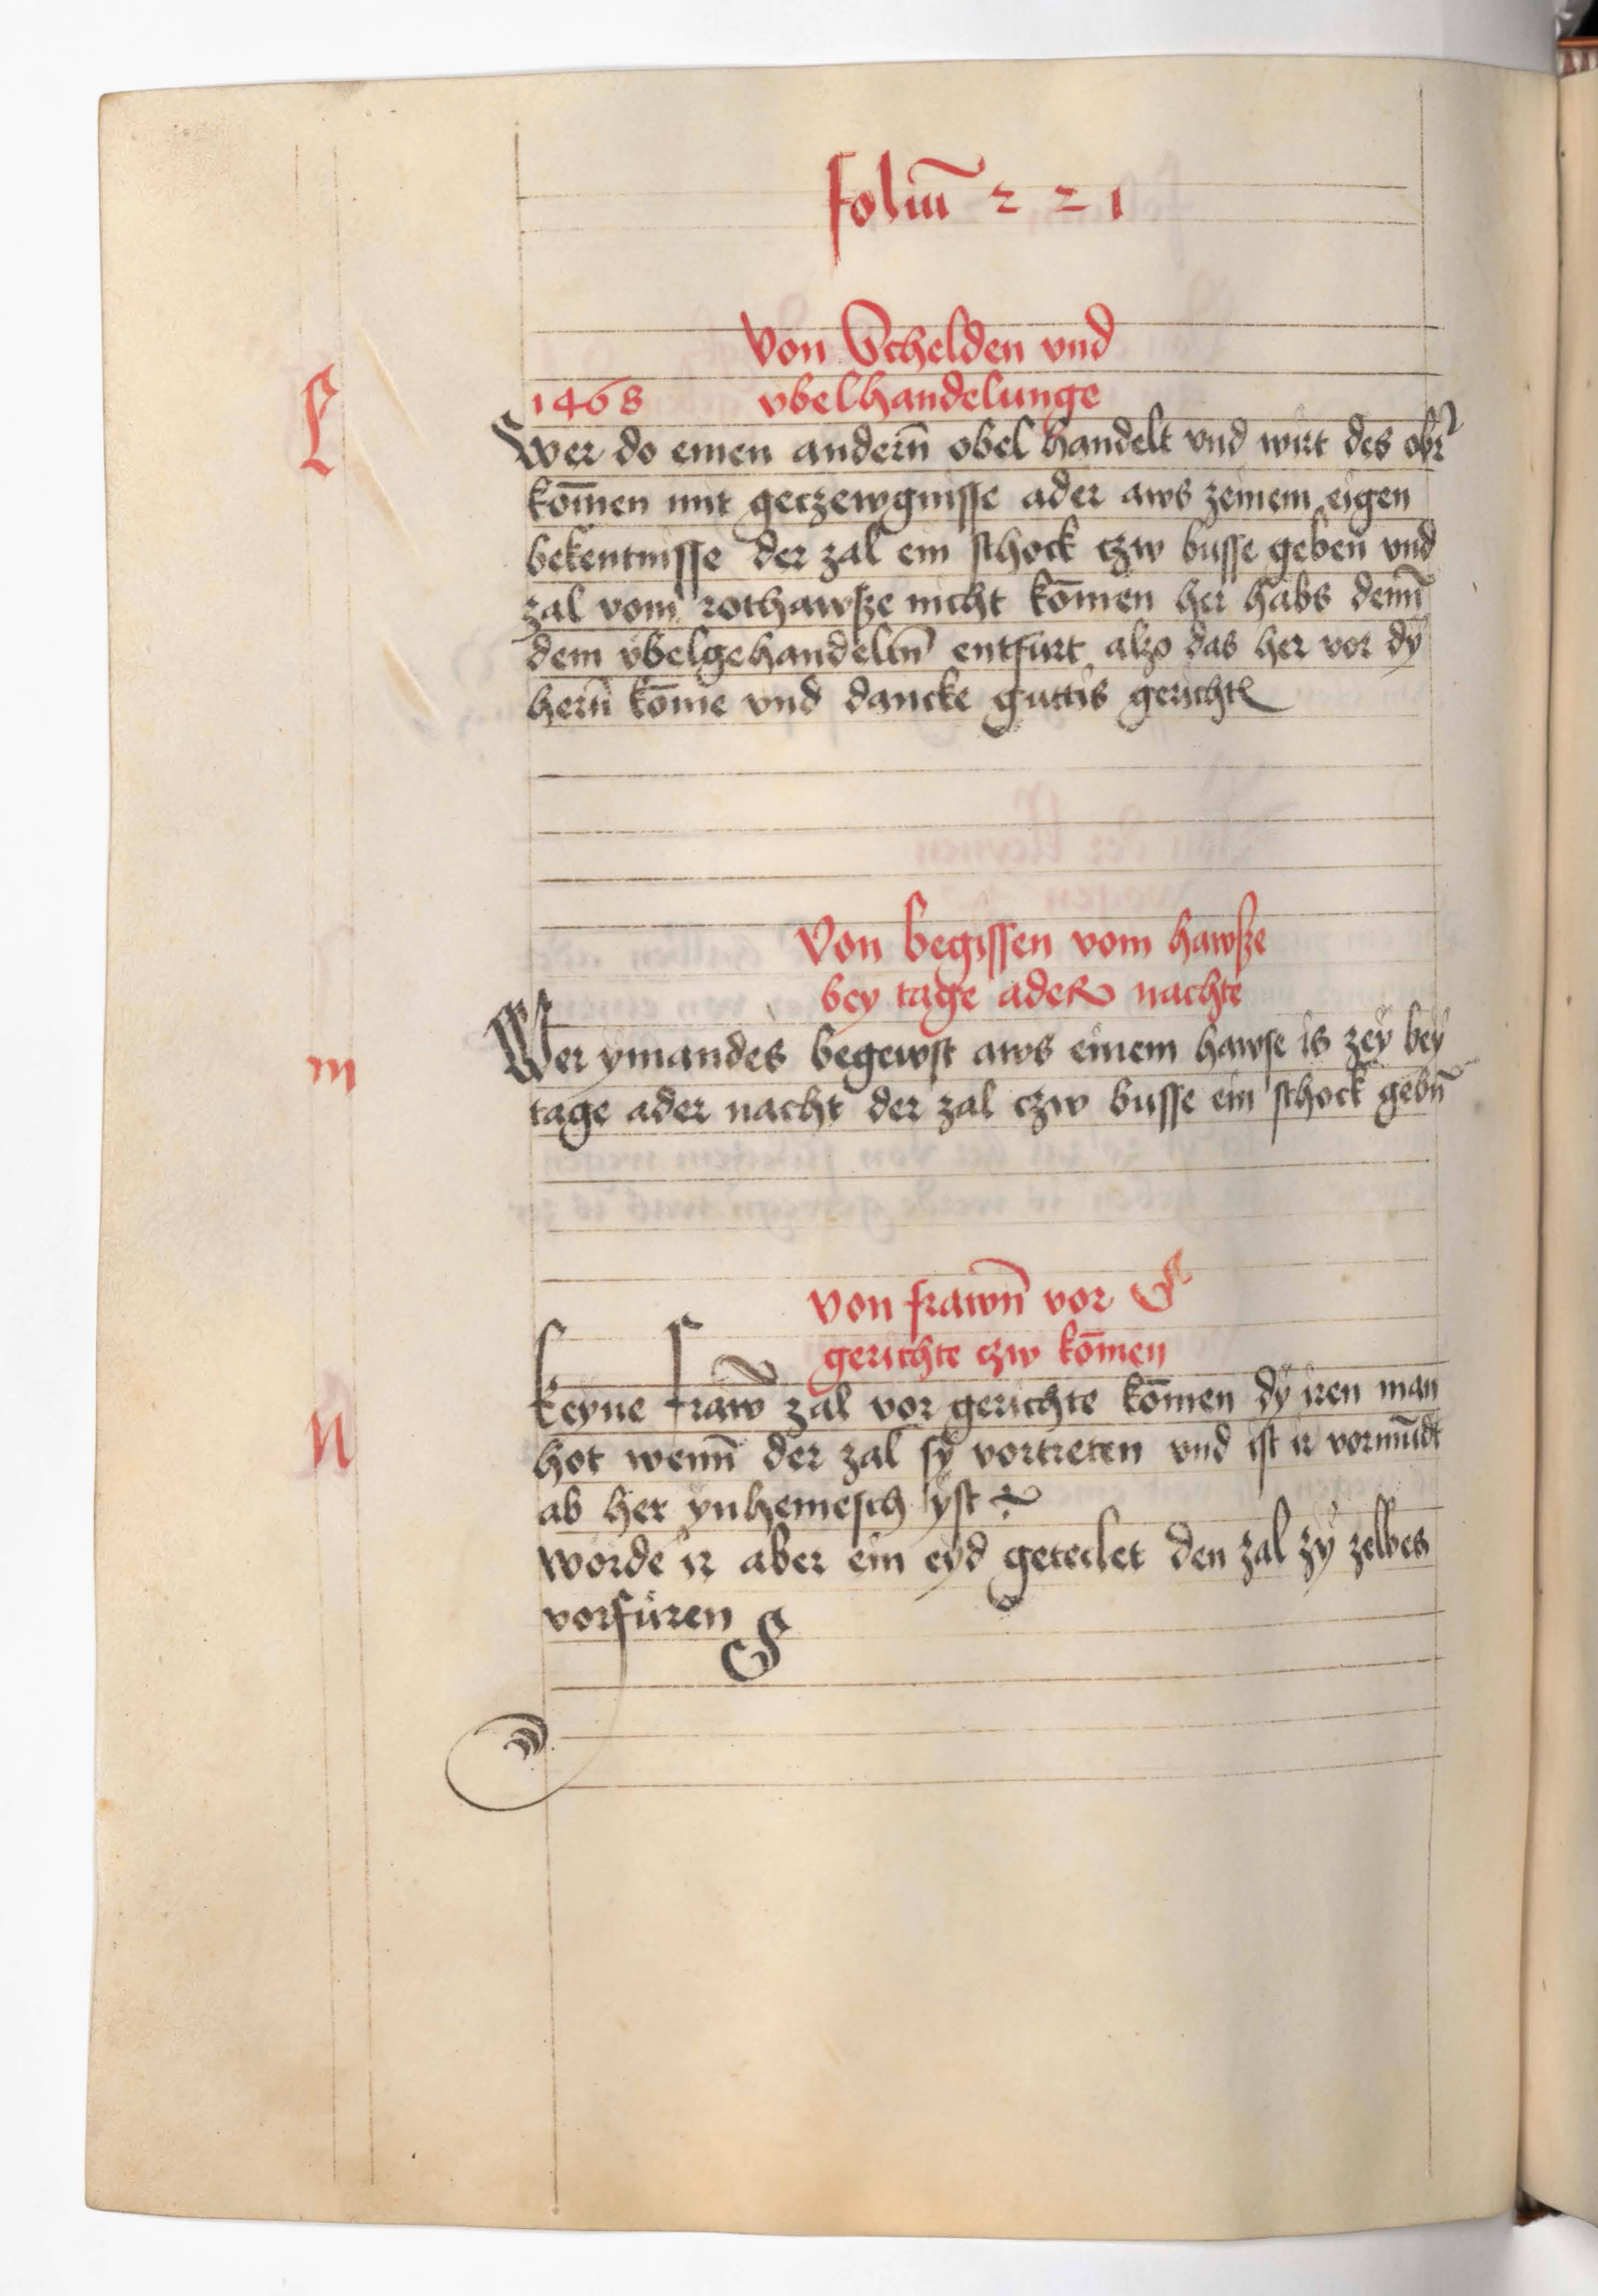 foliū 221
Von Schelden vnd
L
1468 vbelhandelunge
Wer do einen andern̄ obel handelt vnd wirt des obir
kōmen mit geczewgnisse ader aws zeinem eigen
bekentnisse der zal ein schock czw busse geben vnd
zal vom rothawsze nicht kōmen her habs denn̄
dem v̈belgehandeltn̄ entfurt alzo das her vor dÿ
hern̄ kōme vnd dancke guttis gerichtes
Von begissen vom hawsze
bey tage adeR nachte
m
Wer ÿmandes begewst aws einem hawse is zeÿ beÿ
tage ader nacht der zal czw busse ein schock gebn̄
Von frawn̄ vor
gerichte czw kōmen
N
Keyne fraw̄ zal vor gerichte kōmen dÿ iren man
hot wenn̄ der zal sÿ vortreten vnd ist ir vormūdt
ab her ÿnhemesch ÿst
worde ir aber ein eyd geteilet den zal zÿ zelbes
vorfüren